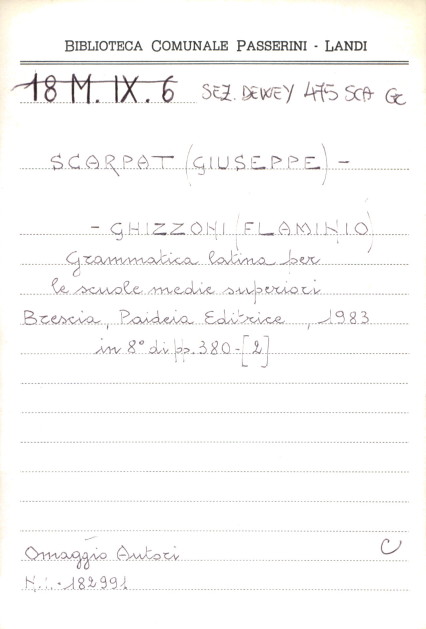 BIBLIOTECA COMUNALE PASSERINI - LANDI
18 M. IX. 6 SEZ. DEWEY 475 SCA GC
SCARPAT (GIUSEPPE) -
- GHIZZONI (FLAMINIO)
Grammatica latina per
le scuole medie superiori
Brescia, Paideia Editrice, 1983
in 8° di pp. 380-[2]
Omaggio Autori C
N.i. - 182991